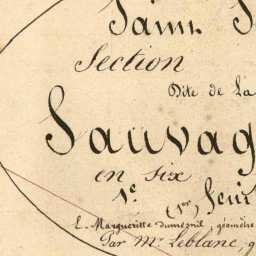 Saint
Section
Dite de La
Sauvag
en six
1e
(1er)
L. Margueritte dumesnil, géomètre
Par Mr Leblanc, g